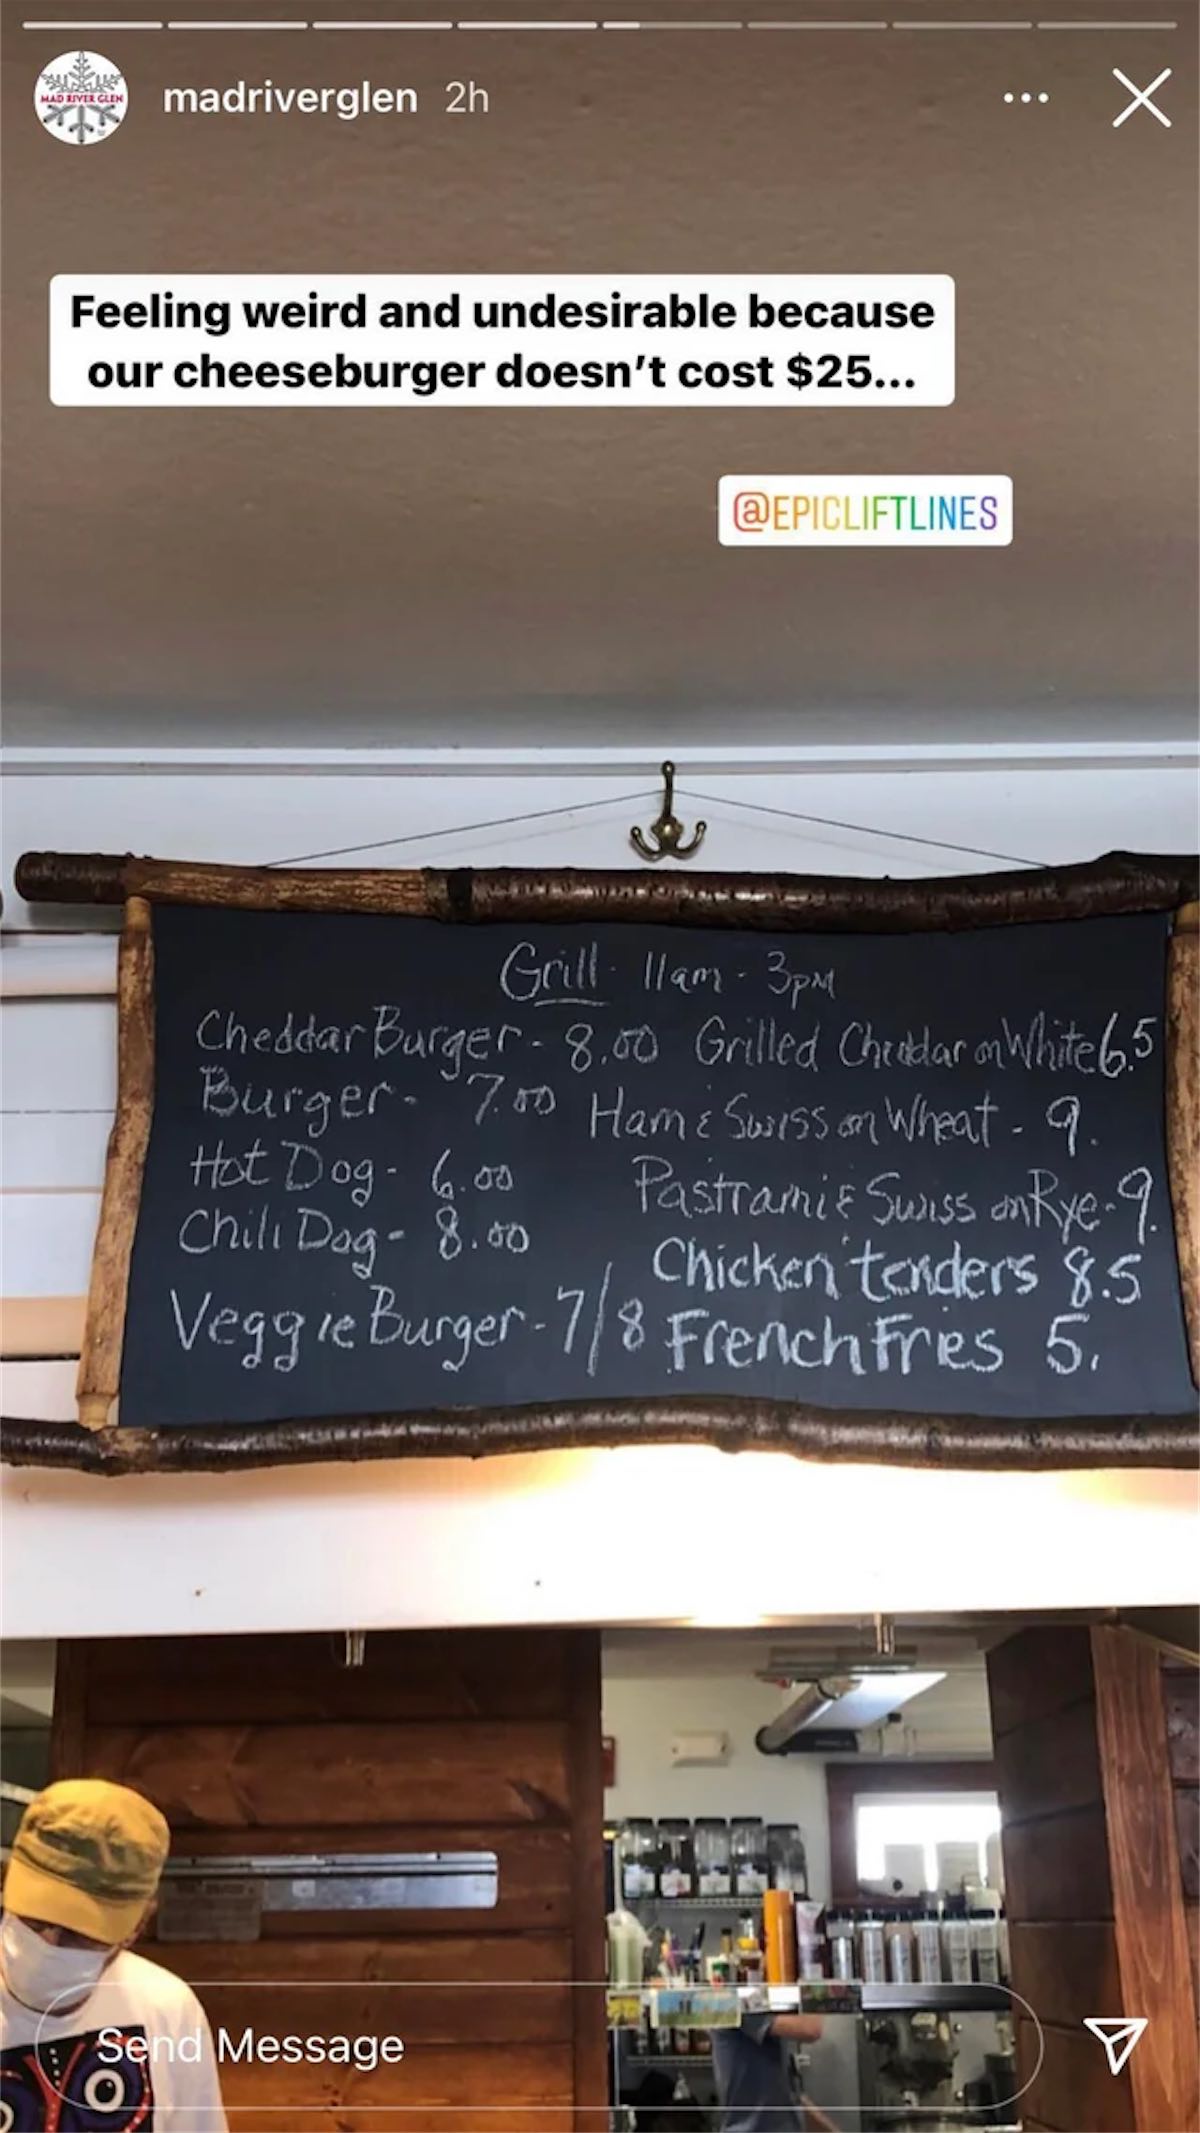 MAD RIVER GLEN
madriverglen 2h
Feeling weird and undesirable because
our cheeseburger doesn't cost $25...
@EPICLIFTLINES
Grill - 11am - 3pm
Cheddar Burger - 8.00
Burger - 7.00
Hot Dog - 6.00
Chili Dog - 8.00
Veggie Burger - 7/8
Grilled Cheddar on White 6.5
Ham & Swiss on Wheat - 9.
Pastrami & Swiss on Rye - 9.
Chicken tenders 8.5
French Fries 5.
Send Message